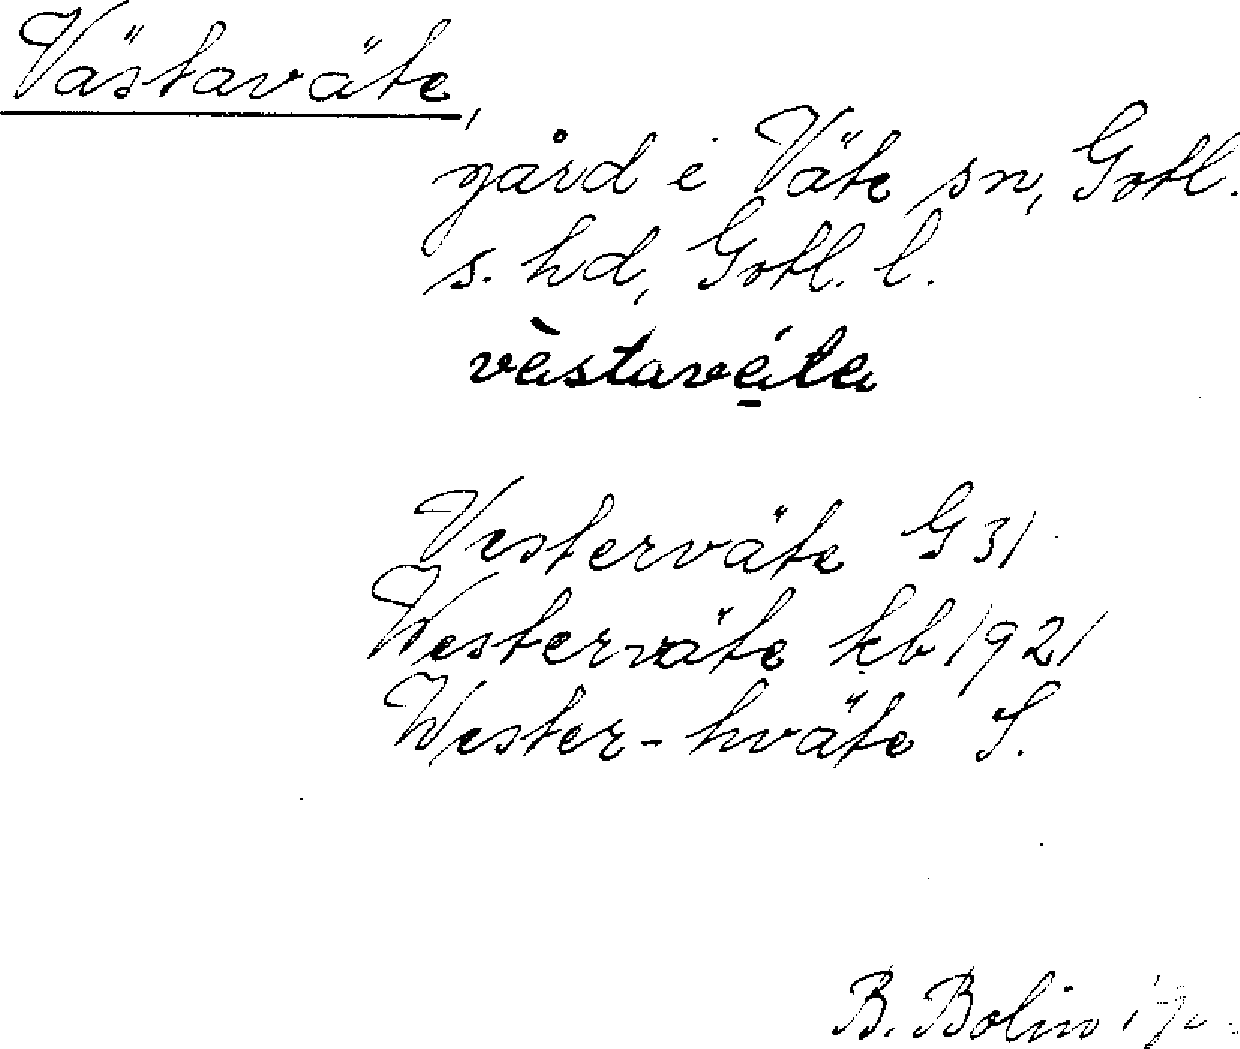 Västaväte,
gård i Väte sn, Gotl.
s. hd, Gotl. l.
västaväta
Vesterväte G 31
Westerväte kb 1921
Wester-hväte S.
B. Bolin